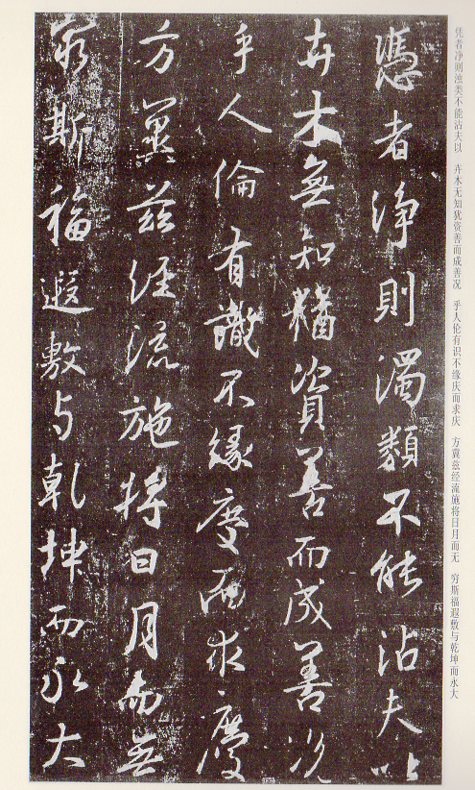 憑者淨則濁類不能沾夫以
卉木無知猶資善而成善況
乎人倫有識不緣慶而求慶
方冀茲經流施將日月而無
窮斯福遐敷与乾坤而永大
凭者净则浊类不能沾夫以　卉木无知犹资善而成善况　乎人伦有识不缘庆而求庆　方冀兹经流施将日月而无　穷斯福遐敷与乾坤而永大